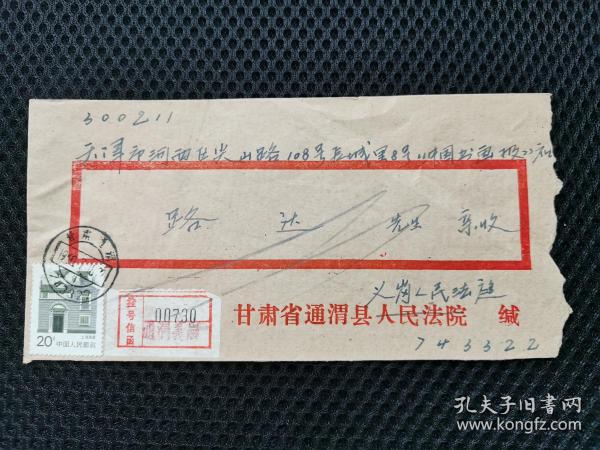 300211
天津市河西区尖山路108号长城里8号《中国书画报》社
路 达 先生 亲收
义岗人民法庭
甘肃省通渭县人民法院 缄
743322
挂号信函
00730
通渭义岗
20分 中国人民邮政
上海民居
孔夫子旧书网
www.kongfz.com